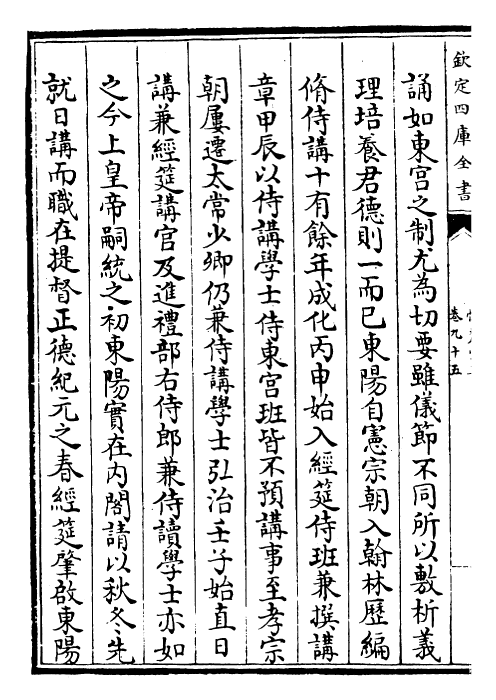 欽定四庫全書
卷九十五
誦如東宮之制尤為切要雖儀節不同所以敷析義
理培養君德則一而已東陽自憲宗朝入翰林歴編
脩侍講十有餘年成化丙申始入經筵侍班兼撰講
章甲辰以侍講學士侍東宮班皆不預講事至孝宗
朝屢遷太常少卿仍兼侍講學士弘治壬子始直日
講兼經筵講官及進禮部右侍郎兼侍讀學士亦如
之今上皇帝嗣統之初東陽實在内閣請以秋冬先
就日講而職在提督正德紀元之春經筵肇啟東陽